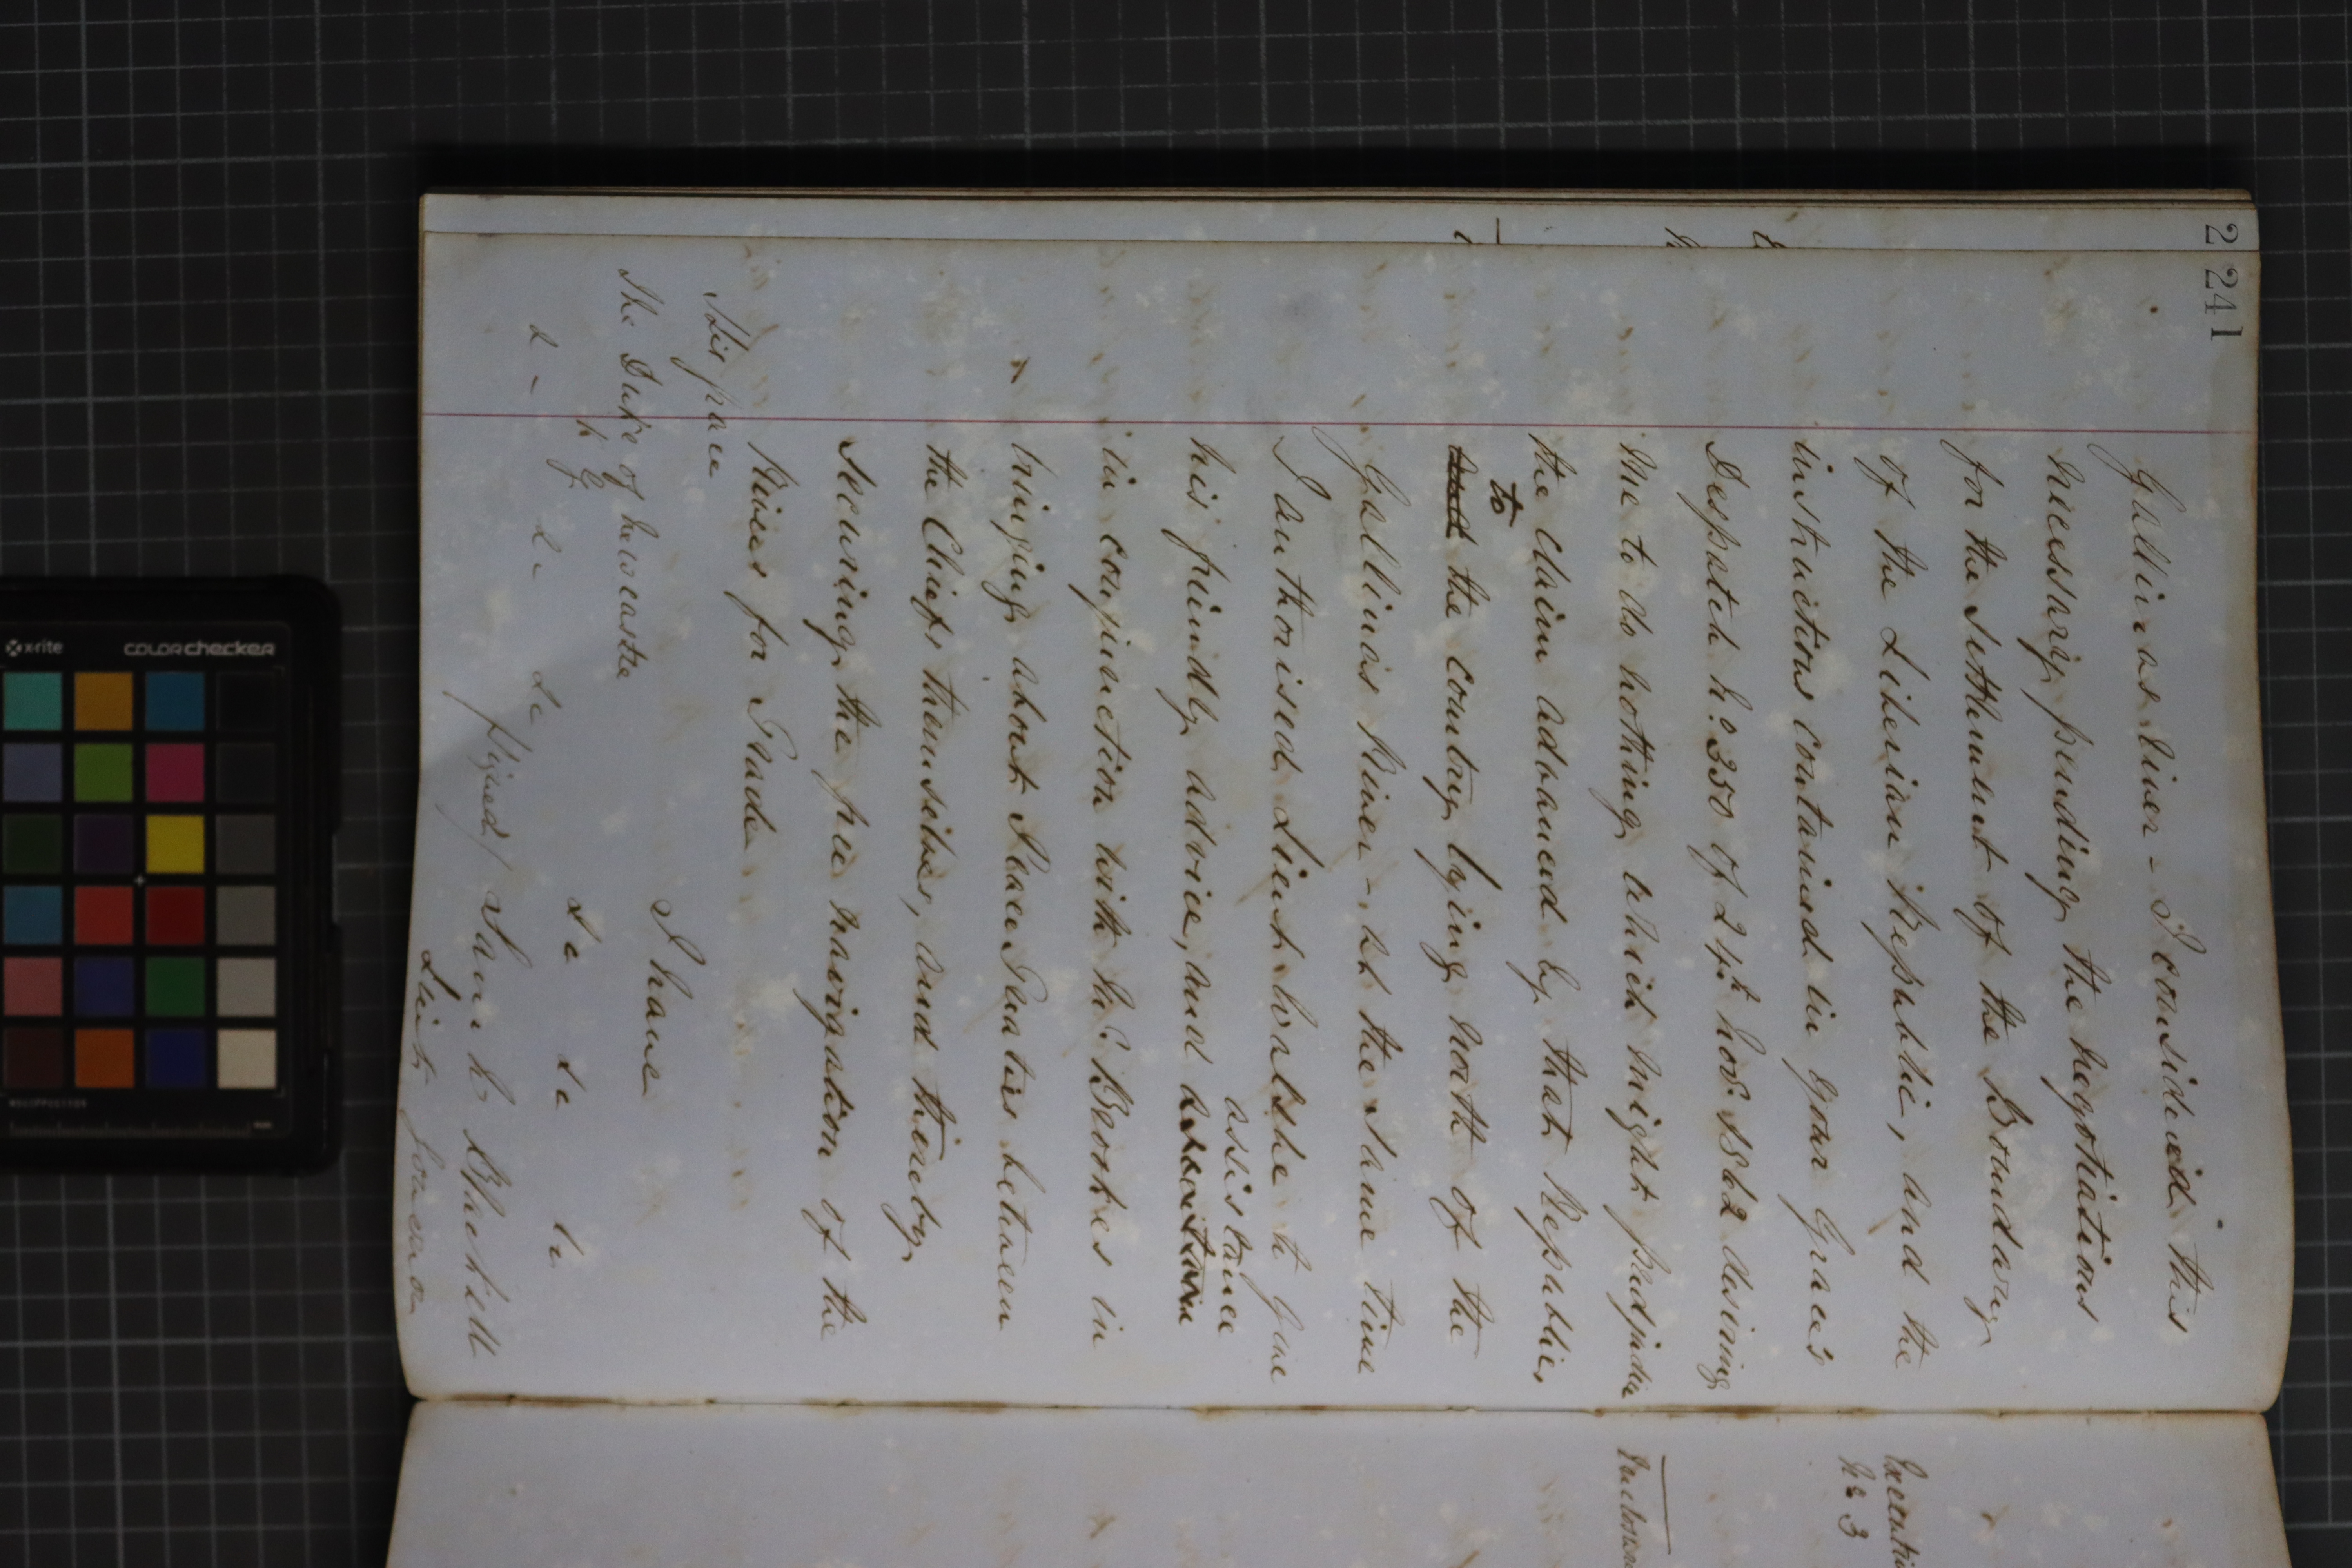 241
Gallinas River - I considered this
necessary pending the negotiations
for the settlement of the Boundary
of the Liberian Republic, and the
instructions contained in your Grace's
Despatch No. 350 of 24th Novr. 1862 desiring
me to do nothing which might prejudice
the claim advanced by that Republic,
to
and the country lying north of the
Gallinas River - at the same time
I authorised Lieut. Walshe to give
assistance
his friendly advice, and
in conjunction with Mr. Brookes in
bringing about Peace Treaties between
the Chiefs themselves, and thereby
securing the free navigation of the
River for Trade.
I have
His Grace
The Duke of Newcastle
K G
&c &c &c &c &c
(Signed) Sam W Blackall
Lieut Governor
2
Executive
No 3
Enclosure
x-rite
colorchecker